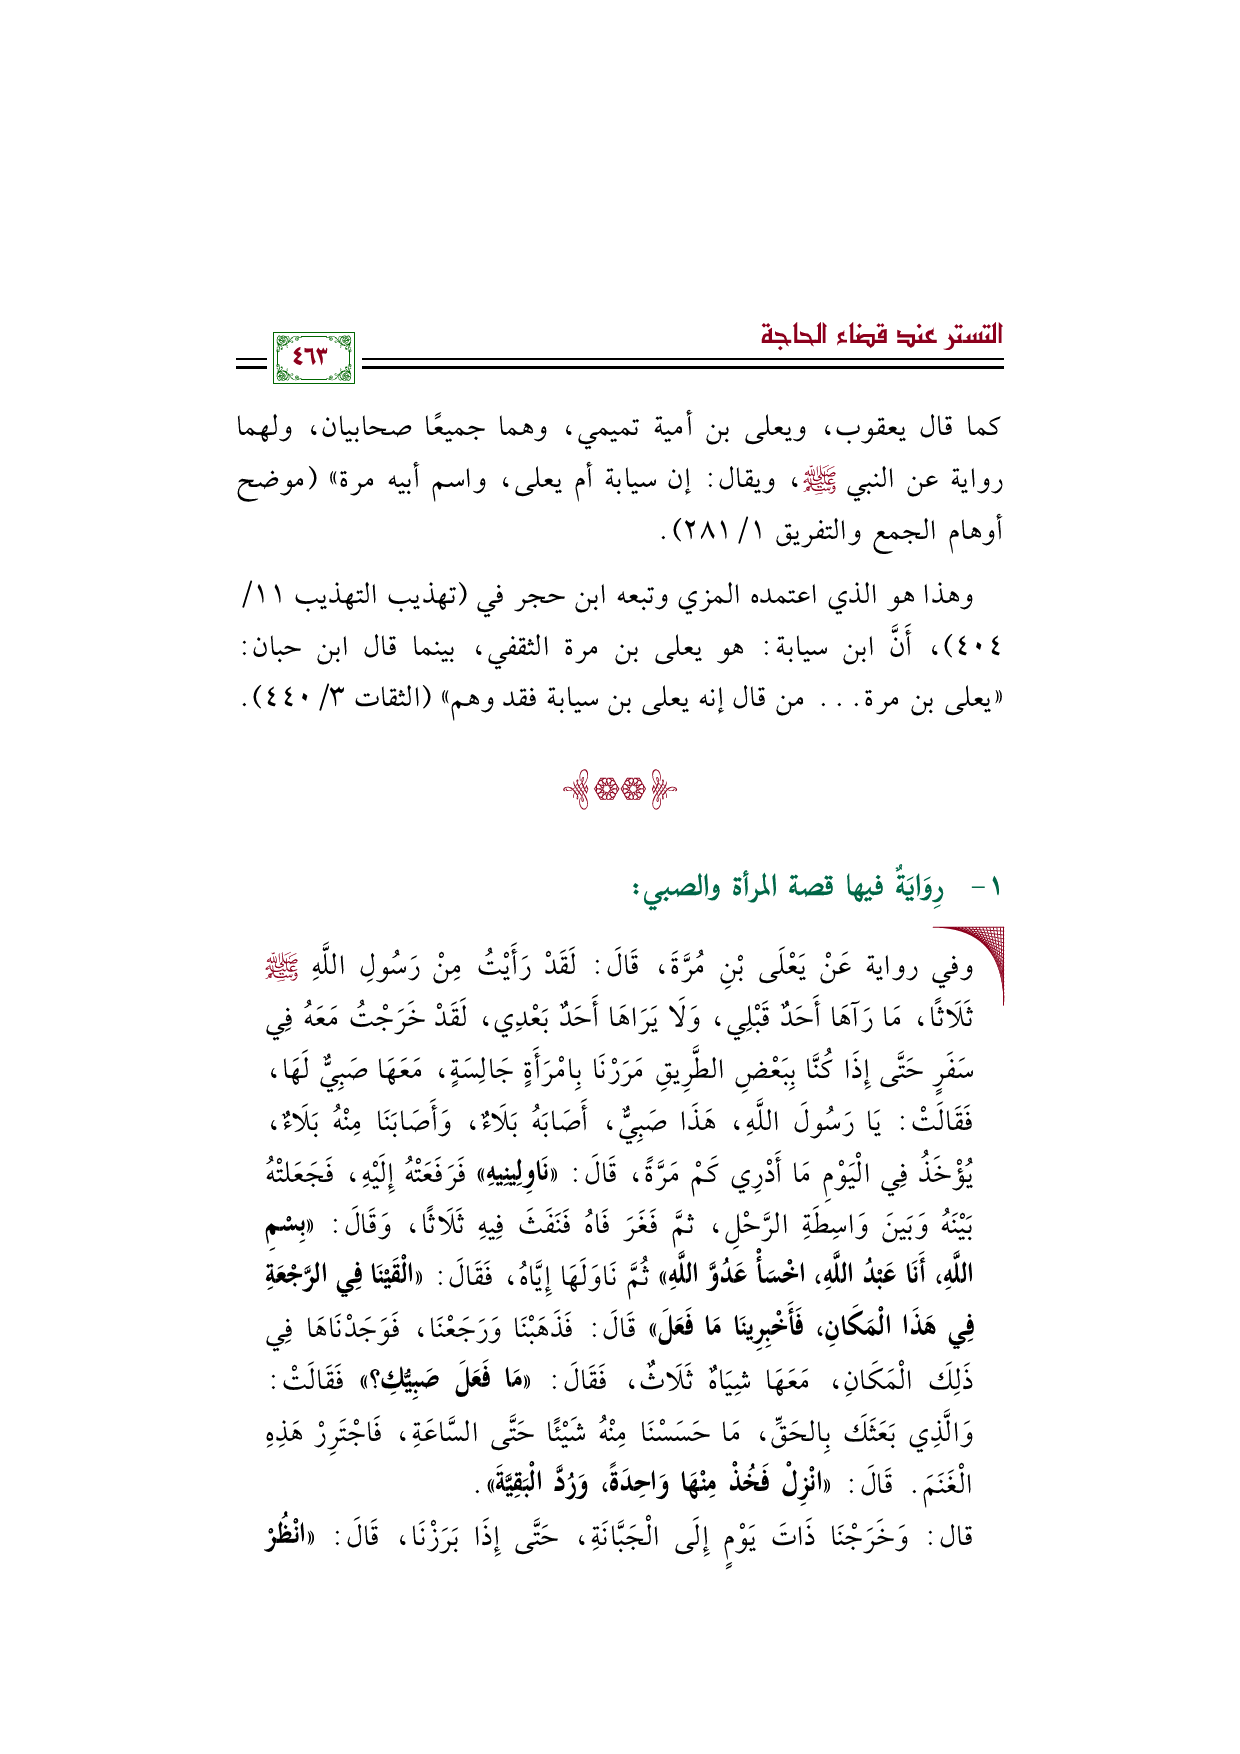 التستر عند قضاء الحاجة
٤٦٣
كما قال يعقوب، ويعلى بن أمية تميمي، وهما جميعًا صحابيان، ولهما
رواية عن النبي ﷺ، ويقال: إن سيابة أم يعلى، واسم أبيه مرة» (موضح
أوهام الجمع والتفريق ١/ ٢٨١).
وهذا هو الذي اعتمده المزي وتبعه ابن حجر في (تهذيب التهذيب ١١/
٤٠٤)، أَنَّ ابن سيابة: هو يعلى بن مرة الثقفي، بينما قال ابن حبان:
«يعلى بن مرة... من قال إنه يعلى بن سيابة فقد وهم» (الثقات ٣/ ٤٤٠).
١- رِوَايَةٌ فيها قصة المرأة والصبي:
وفي رواية عَنْ يَعْلَى بْنِ مُرَّةَ، قَالَ: لَقَدْ رَأَيْتُ مِنْ رَسُولِ اللَّهِ ﷺ
ثَلَاثًا، مَا رَآهَا أَحَدٌ قَبْلِي، وَلَا يَرَاهَا أَحَدٌ بَعْدِي، لَقَدْ خَرَجْتُ مَعَهُ فِي
سَفَرٍ حَتَّى إِذَا كُنَّا بِبَعْضِ الطَّرِيقِ مَرَرْنَا بِامْرَأَةٍ جَالِسَةٍ، مَعَهَا صَبِيٌّ لَهَا،
فَقَالَتْ: يَا رَسُولَ اللَّهِ، هَذَا صَبِيٌّ، أَصَابَهُ بَلَاءٌ، وَأَصَابَنَا مِنْهُ بَلَاءٌ،
يُؤْخَذُ فِي الْيَوْمِ مَا أَدْرِي كَمْ مَرَّةً، قَالَ: «نَاوِلِينِيهِ» فَرَفَعَتْهُ إِلَيْهِ، فَجَعَلتْهُ
بَيْنَهُ وَبَينَ وَاسِطَةِ الرَّحْلِ، ثمَّ فَغَرَ فَاهُ فَنَفَثَ فِيهِ ثَلَاثًا، وَقَالَ: «بِسْمِ
اللَّهِ، أَنَا عَبْدُ اللَّهِ، اخْسَأْ عَدُوَّ اللَّهِ» ثُمَّ نَاوَلَهَا إِيَّاهُ، فَقَالَ: «الْقَيْنَا فِي الرَّجْعَةِ
فِي هَذَا الْمَكَانِ، فَأَخْبِرِينَا مَا فَعَلَ» قَالَ: فَذَهَبْنَا وَرَجَعْنَا، فَوَجَدْنَاهَا فِي
ذَلِكَ الْمَكَانِ، مَعَهَا شِيَاهٌ ثَلَاثٌ، فَقَالَ: «مَا فَعَلَ صَبِيُّكِ؟» فَقَالَتْ:
وَالَّذِي بَعَثَكَ بِالحَقِّ، مَا حَسَسْنَا مِنْهُ شَيْئًا حَتَّى السَّاعَةِ، فَاجْتَرِرْ هَذِهِ
الْغَنَمَ. قَالَ: «انْزِلْ فَخُذْ مِنْهَا وَاحِدَةً، وَرُدَّ الْبَقِيَّةَ».
قال: وَخَرَجْنَا ذَاتَ يَوْمٍ إِلَى الْجَبَّانَةِ، حَتَّى إِذَا بَرَزْنَا، قَالَ: «انْظُرْ